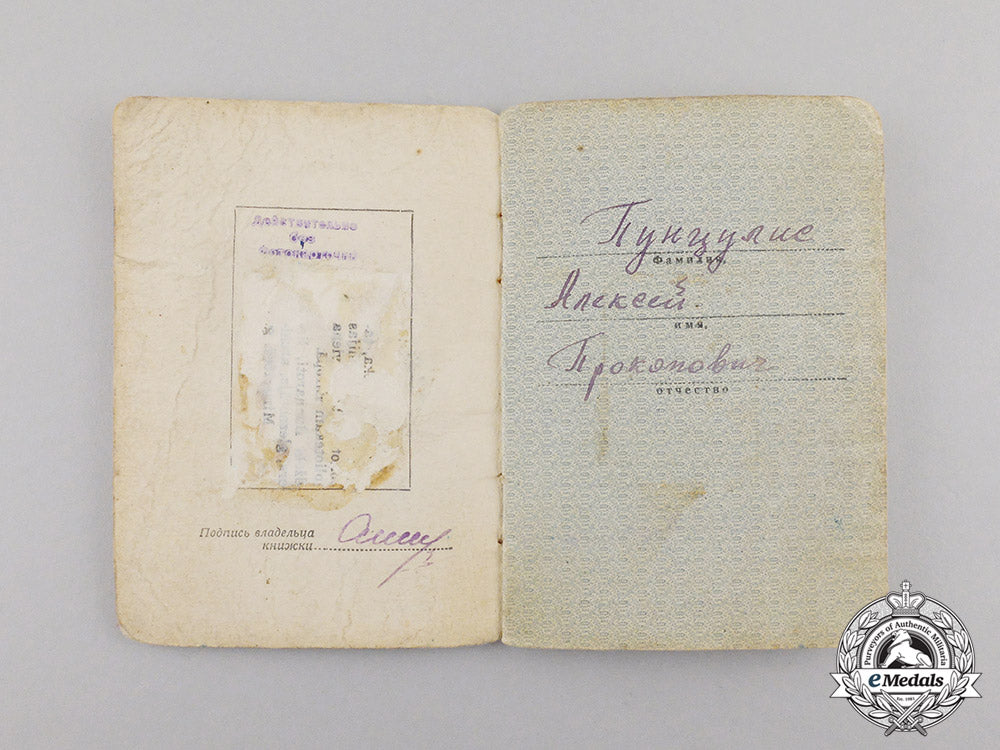 Действительно
без
фотокарточки
Подпись владельца
книжки
Пунцулис
Фамилия,
Алексей.
имя,
Прокопович
отчество
Purveyors of Authentic Militaria
eMedals